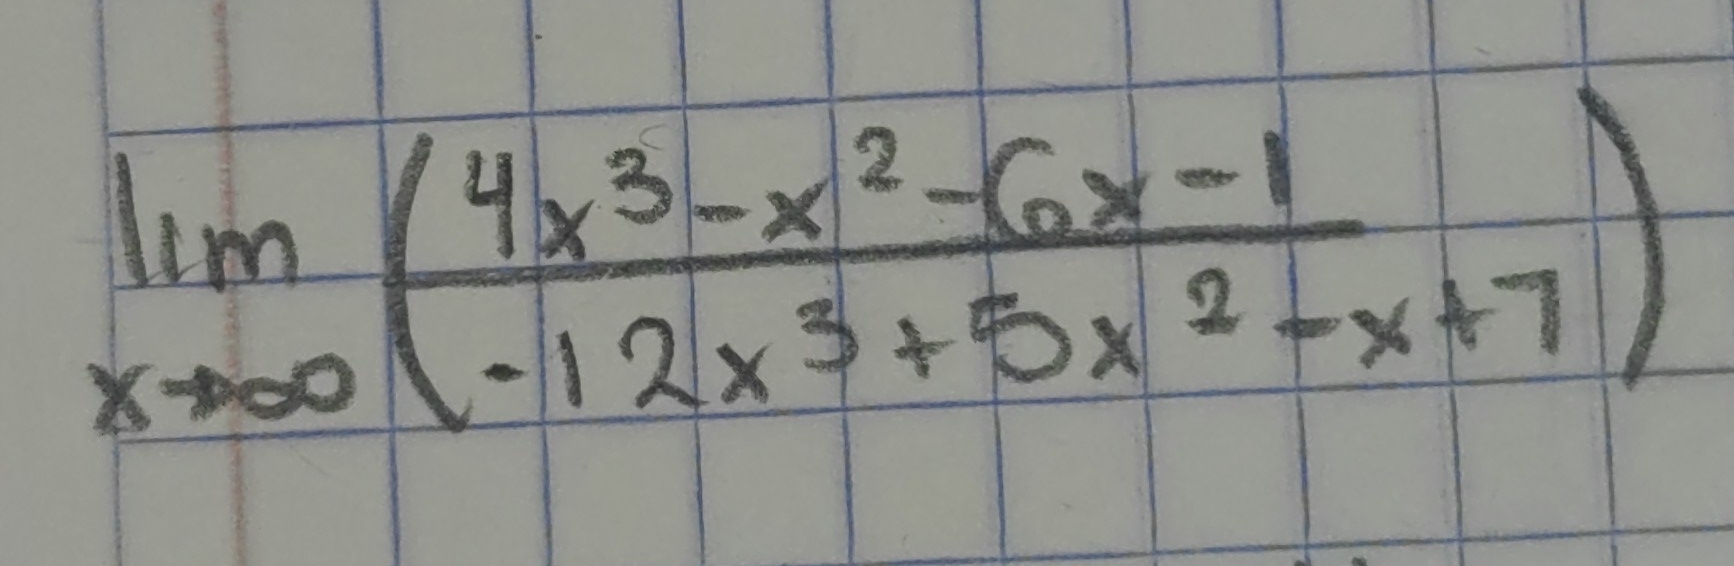 lim (4x³-x²-6x-1
x→∞ -12x³+5x²-x+7)